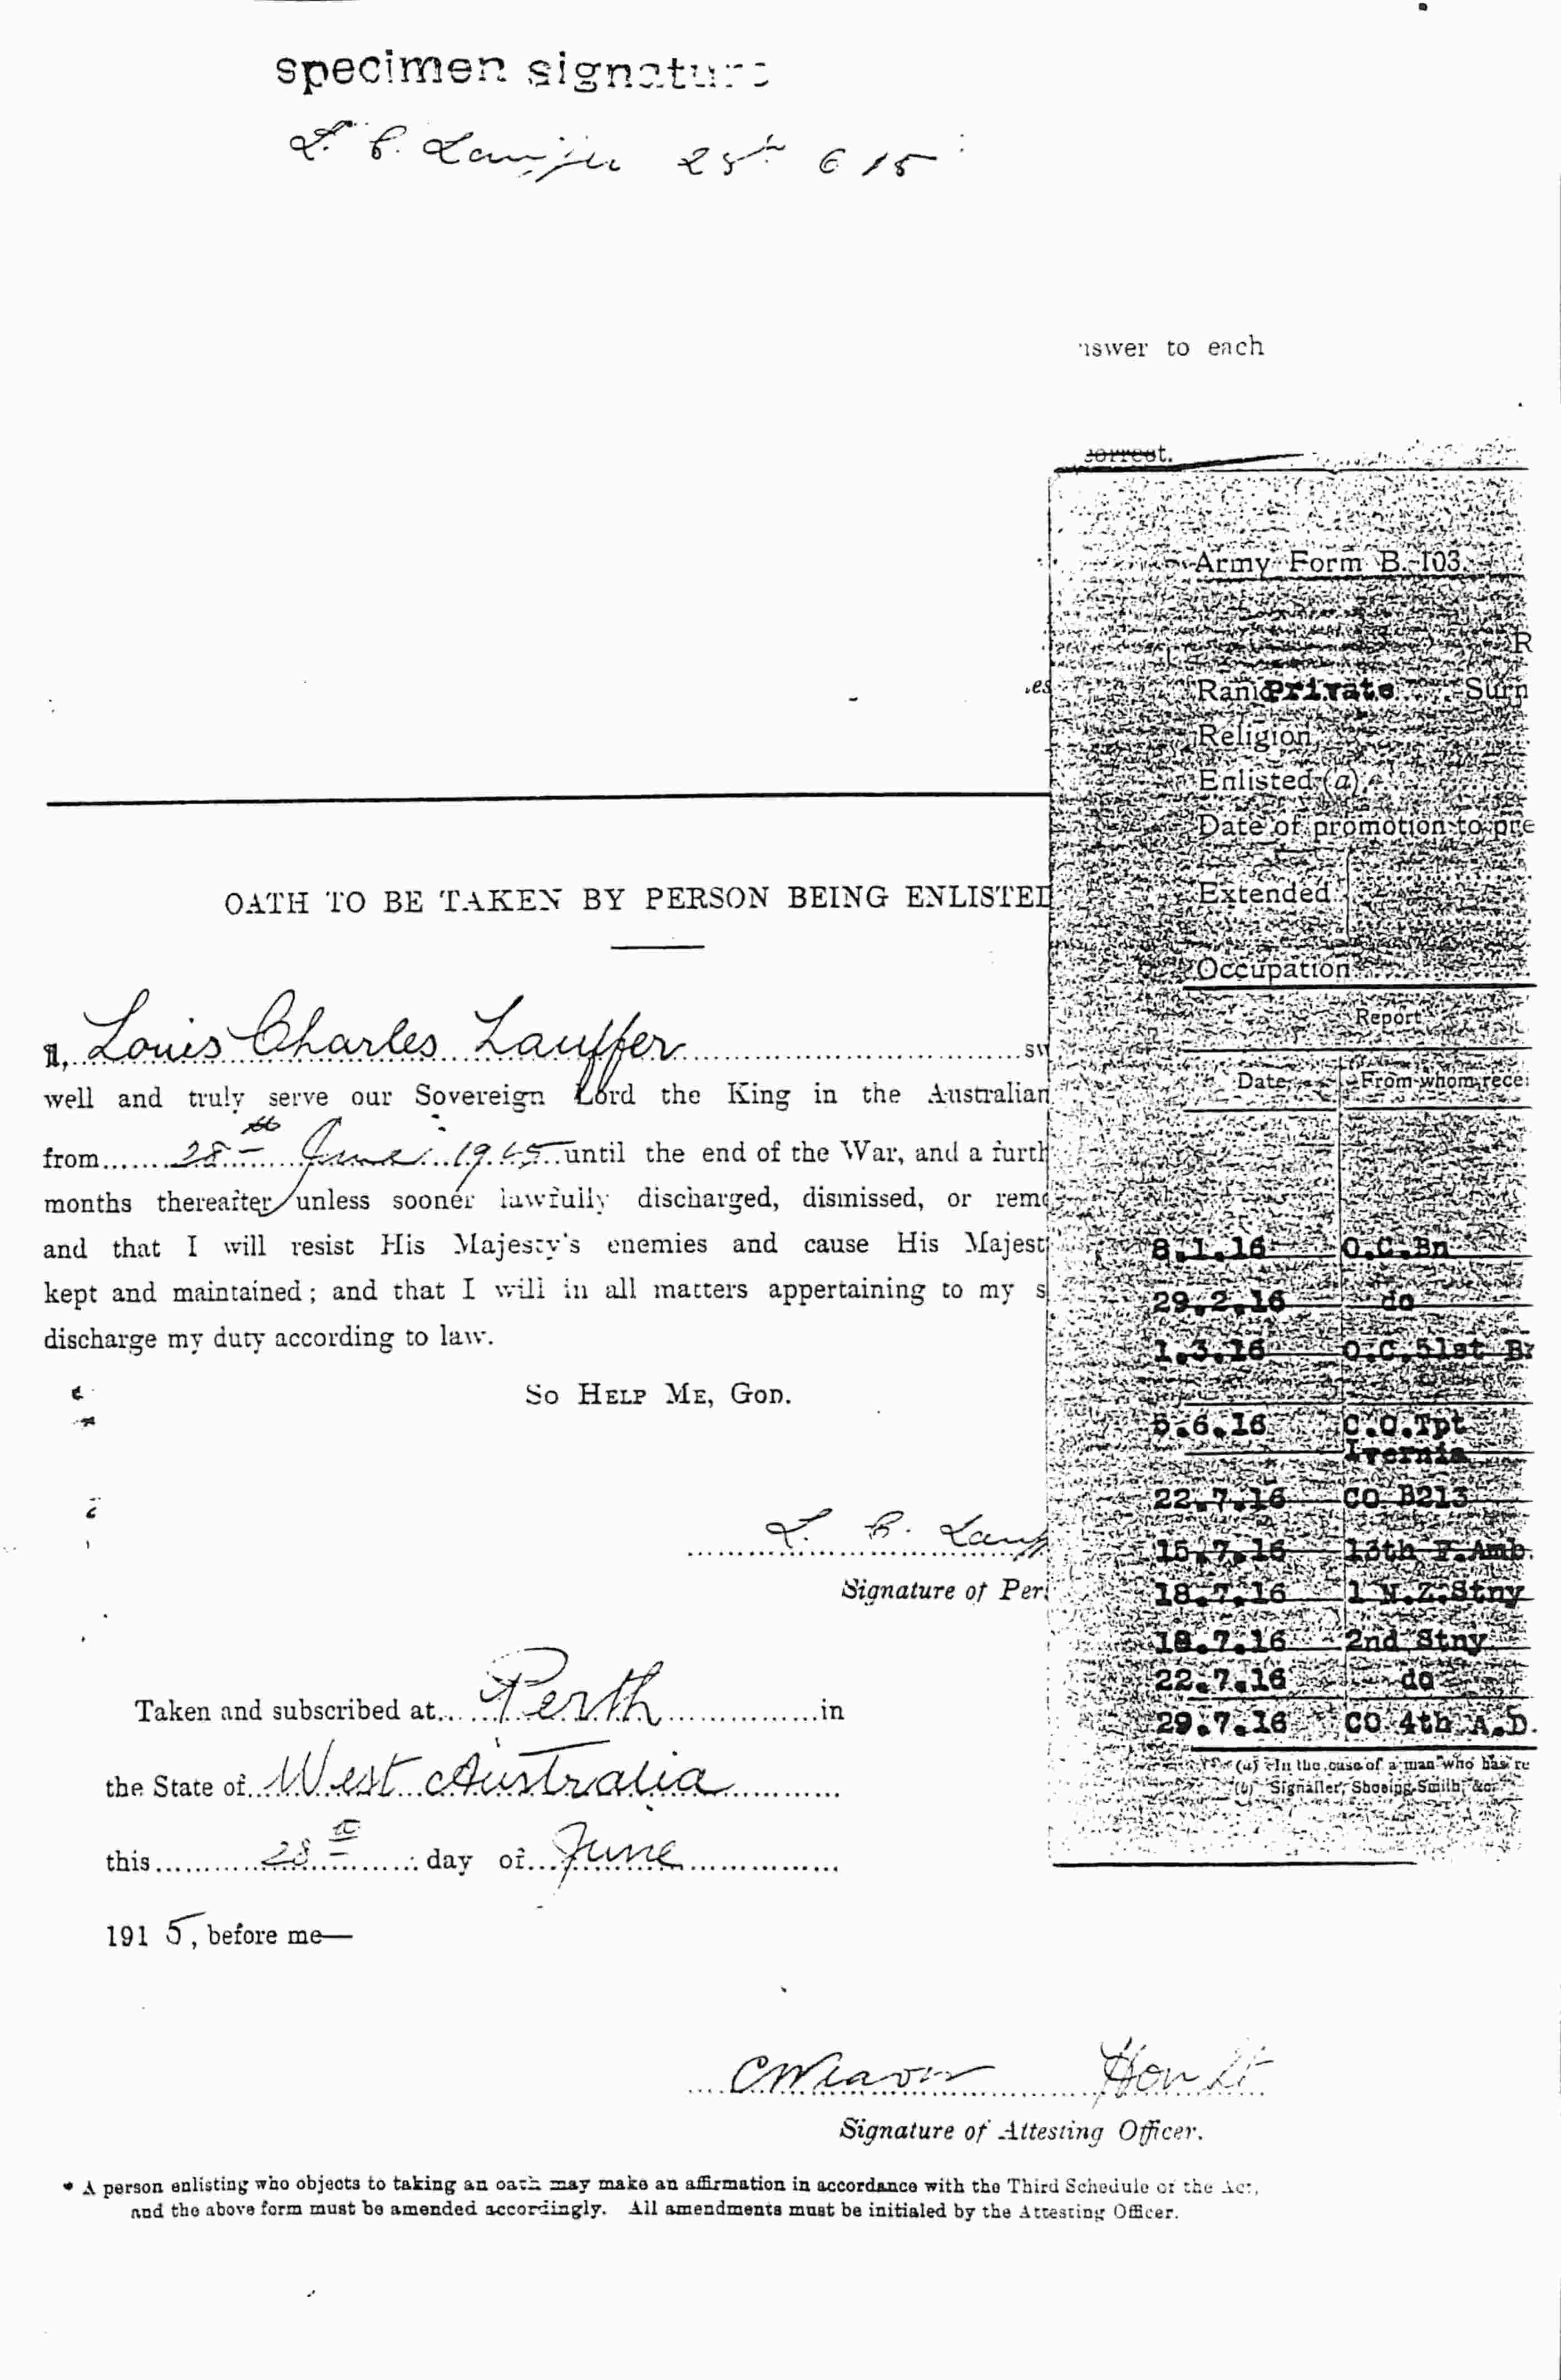 specimen signature
L. C. Lauffer 28th 6 15
nswer to each
correct.
OATH TO BE TAKEN BY PERSON BEING ENLISTED
I, Louis Charles Lauffer sw
well and truly serve our Sovereign Lord the King in the Australian
from 28th June 1915 until the end of the War, and a furth
months thereafter unless sooner lawfully discharged, dismissed, or remo
and that I will resist His Majesty's enemies and cause His Majest
kept and maintained; and that I will in all matters appertaining to my s
discharge my duty according to law.
So Help Me, God.
L. C. Lauff
Signature of Per
Taken and subscribed at Perth in
the State of West Australia
this 28th day of June
1915, before me—
C Weaver Hon Lt
Signature of Attesting Officer.
* A person enlisting who objects to taking an oath may make an affirmation in accordance with the Third Schedule of the Act,
and the above form must be amended accordingly. All amendments must be initialed by the Attesting Officer.
Army Form B. 103.
R
Rank Private Surn
Religion
Enlisted (a)
Date of promotion to pre
Extended
Occupation
Report
Date From whom rece
8.1.16 O.C.Bn
29.2.16 do
1.3.16 O.C.51st B
5.6.16 C.O.Tpt
Ivernia
22.7.16 CO B213
15.7.16 13th F.Amb.
18.7.16 1 N.Z.Stny
18.7.16 2nd Stny
22.7.16 do
29.7.16 CO 4th A.D.
(a) In the case of a man who has re
(b) Signaller, Shoeing Smith, &c.